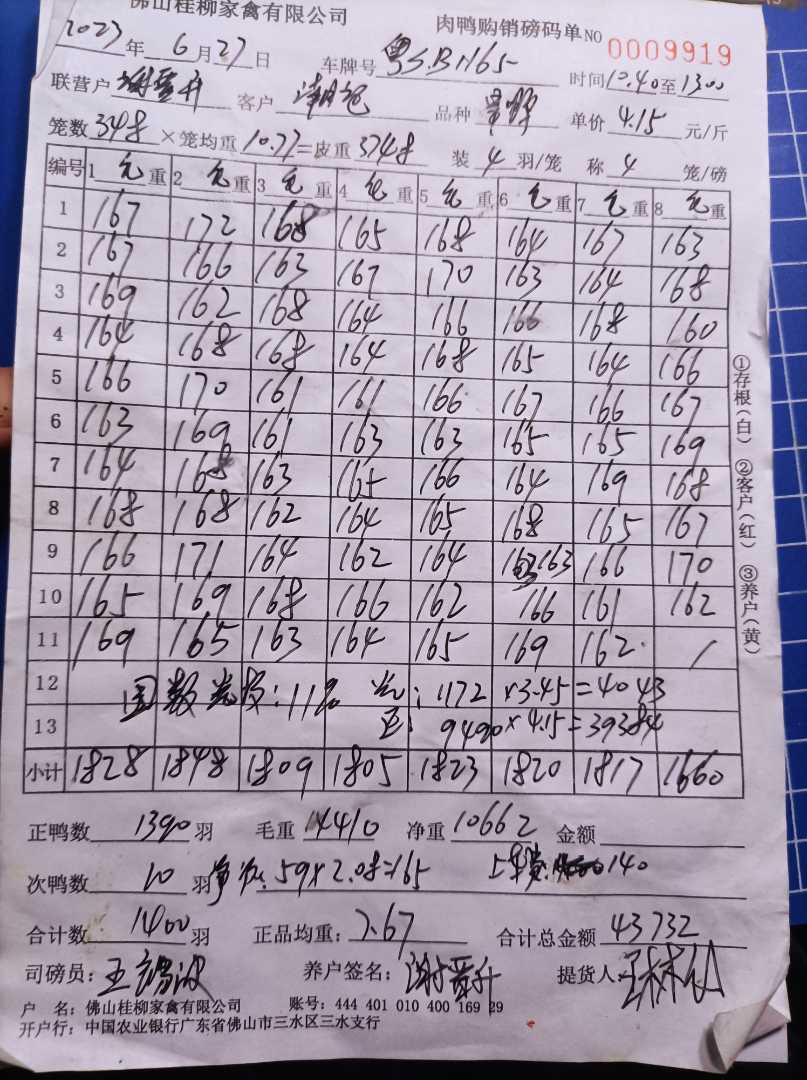 佛山桂柳家禽有限公司 肉鸭购销磅码单 NO 0009919
2023年 6月27日 车牌号 粤S.B1165 时间12.40至1300
联营户 谢晋升 客户 品种 单价 4.15 元/斤
笼数 348 ×笼均重 10.77 =皮重 3748 装 4 羽/笼 称 4 笼/磅
编号 1 毛重 2 毛重 3 毛重 4 毛重 5 毛重 6 毛重 7 毛重 8 毛重
1 167 172 168 165 168 164 167 163
2 167 166 163 167 170 163 164 168
3 169 162 168 164 166 166 168 160
4 164 168 168 164 168 165 164 166
5 166 170 161 161 166 167 166 167
6 163 169 161 163 163 165 165 169
7 164 168 163 165 166 164 169 168
8 168 168 162 164 165 168 165 167
9 166 171 164 162 164 163 166 170
10 165 169 168 166 162 166 161 162
11 169 165 163 164 165 169 162 /
12 : 11% : 1172 ×3.45=4043
13 9490×4.15=39384
小计 1828 1848 1809 1805 1823 1820 1817 1660
正鸭数 1390 羽 毛重 14410 净重 10662 金额
次鸭数 10 羽 59×2.08=165 140
合计数 1400 羽 正品均重: 7.67 合计总金额 43732
司磅员: 养户签名: 谢晋升 提货人
户 名: 佛山桂柳家禽有限公司 账号: 444 401 010 400 169 29
开户行: 中国农业银行广东省佛山市三水区三水支行
①存根(白) ②客户(红) ③养户(黄)